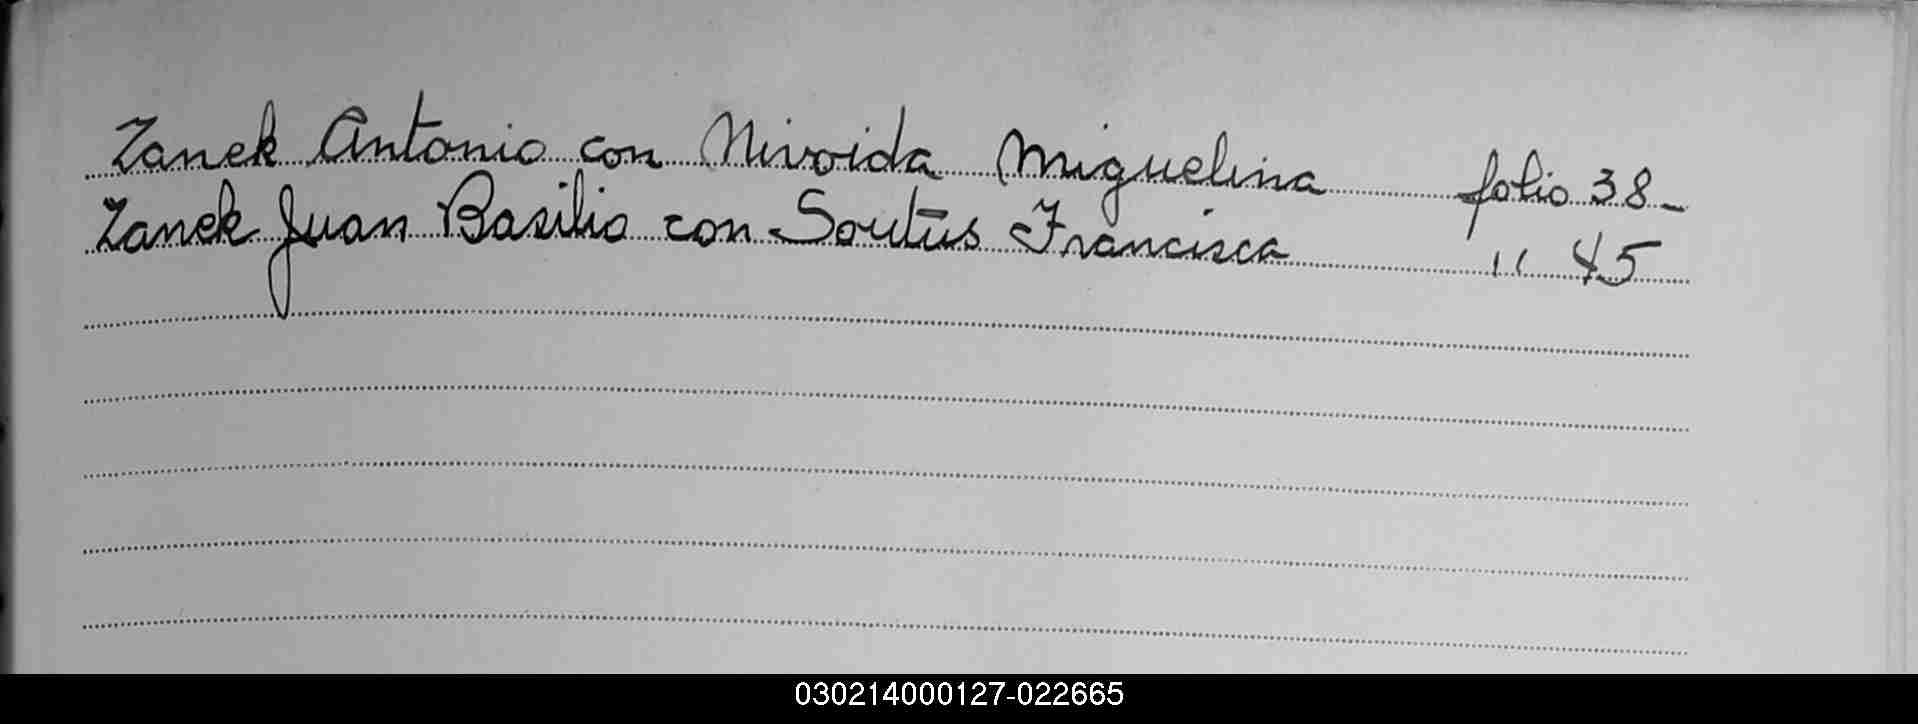 Zanek Antonio con Nivoida Miguelina folio 38-
Zanek Juan Basilio con Soutus Francisca " 45
030214000127-022665